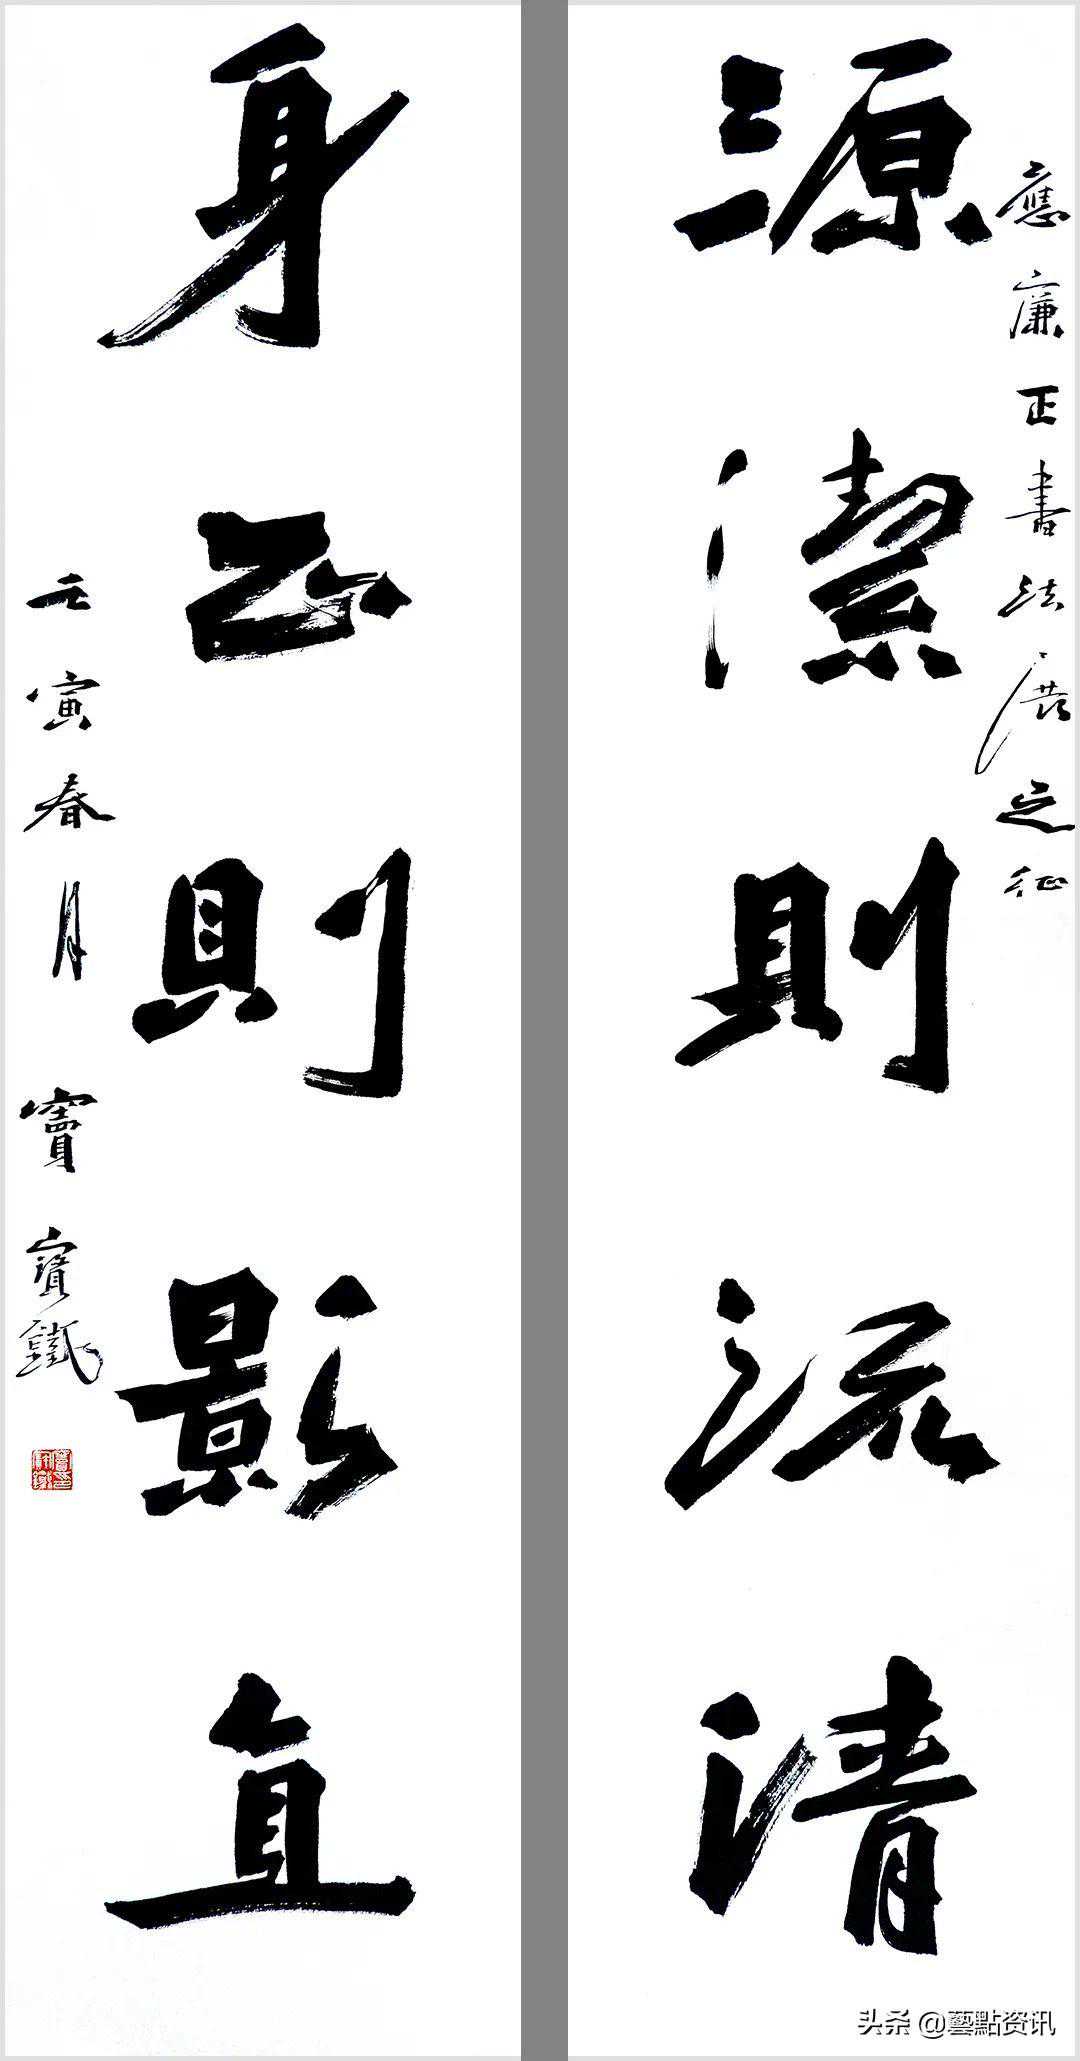 應廉正書法展之征
源潔則流清
身正則影直
壬寅春月 竇寶鐵
头条 @藝點资讯